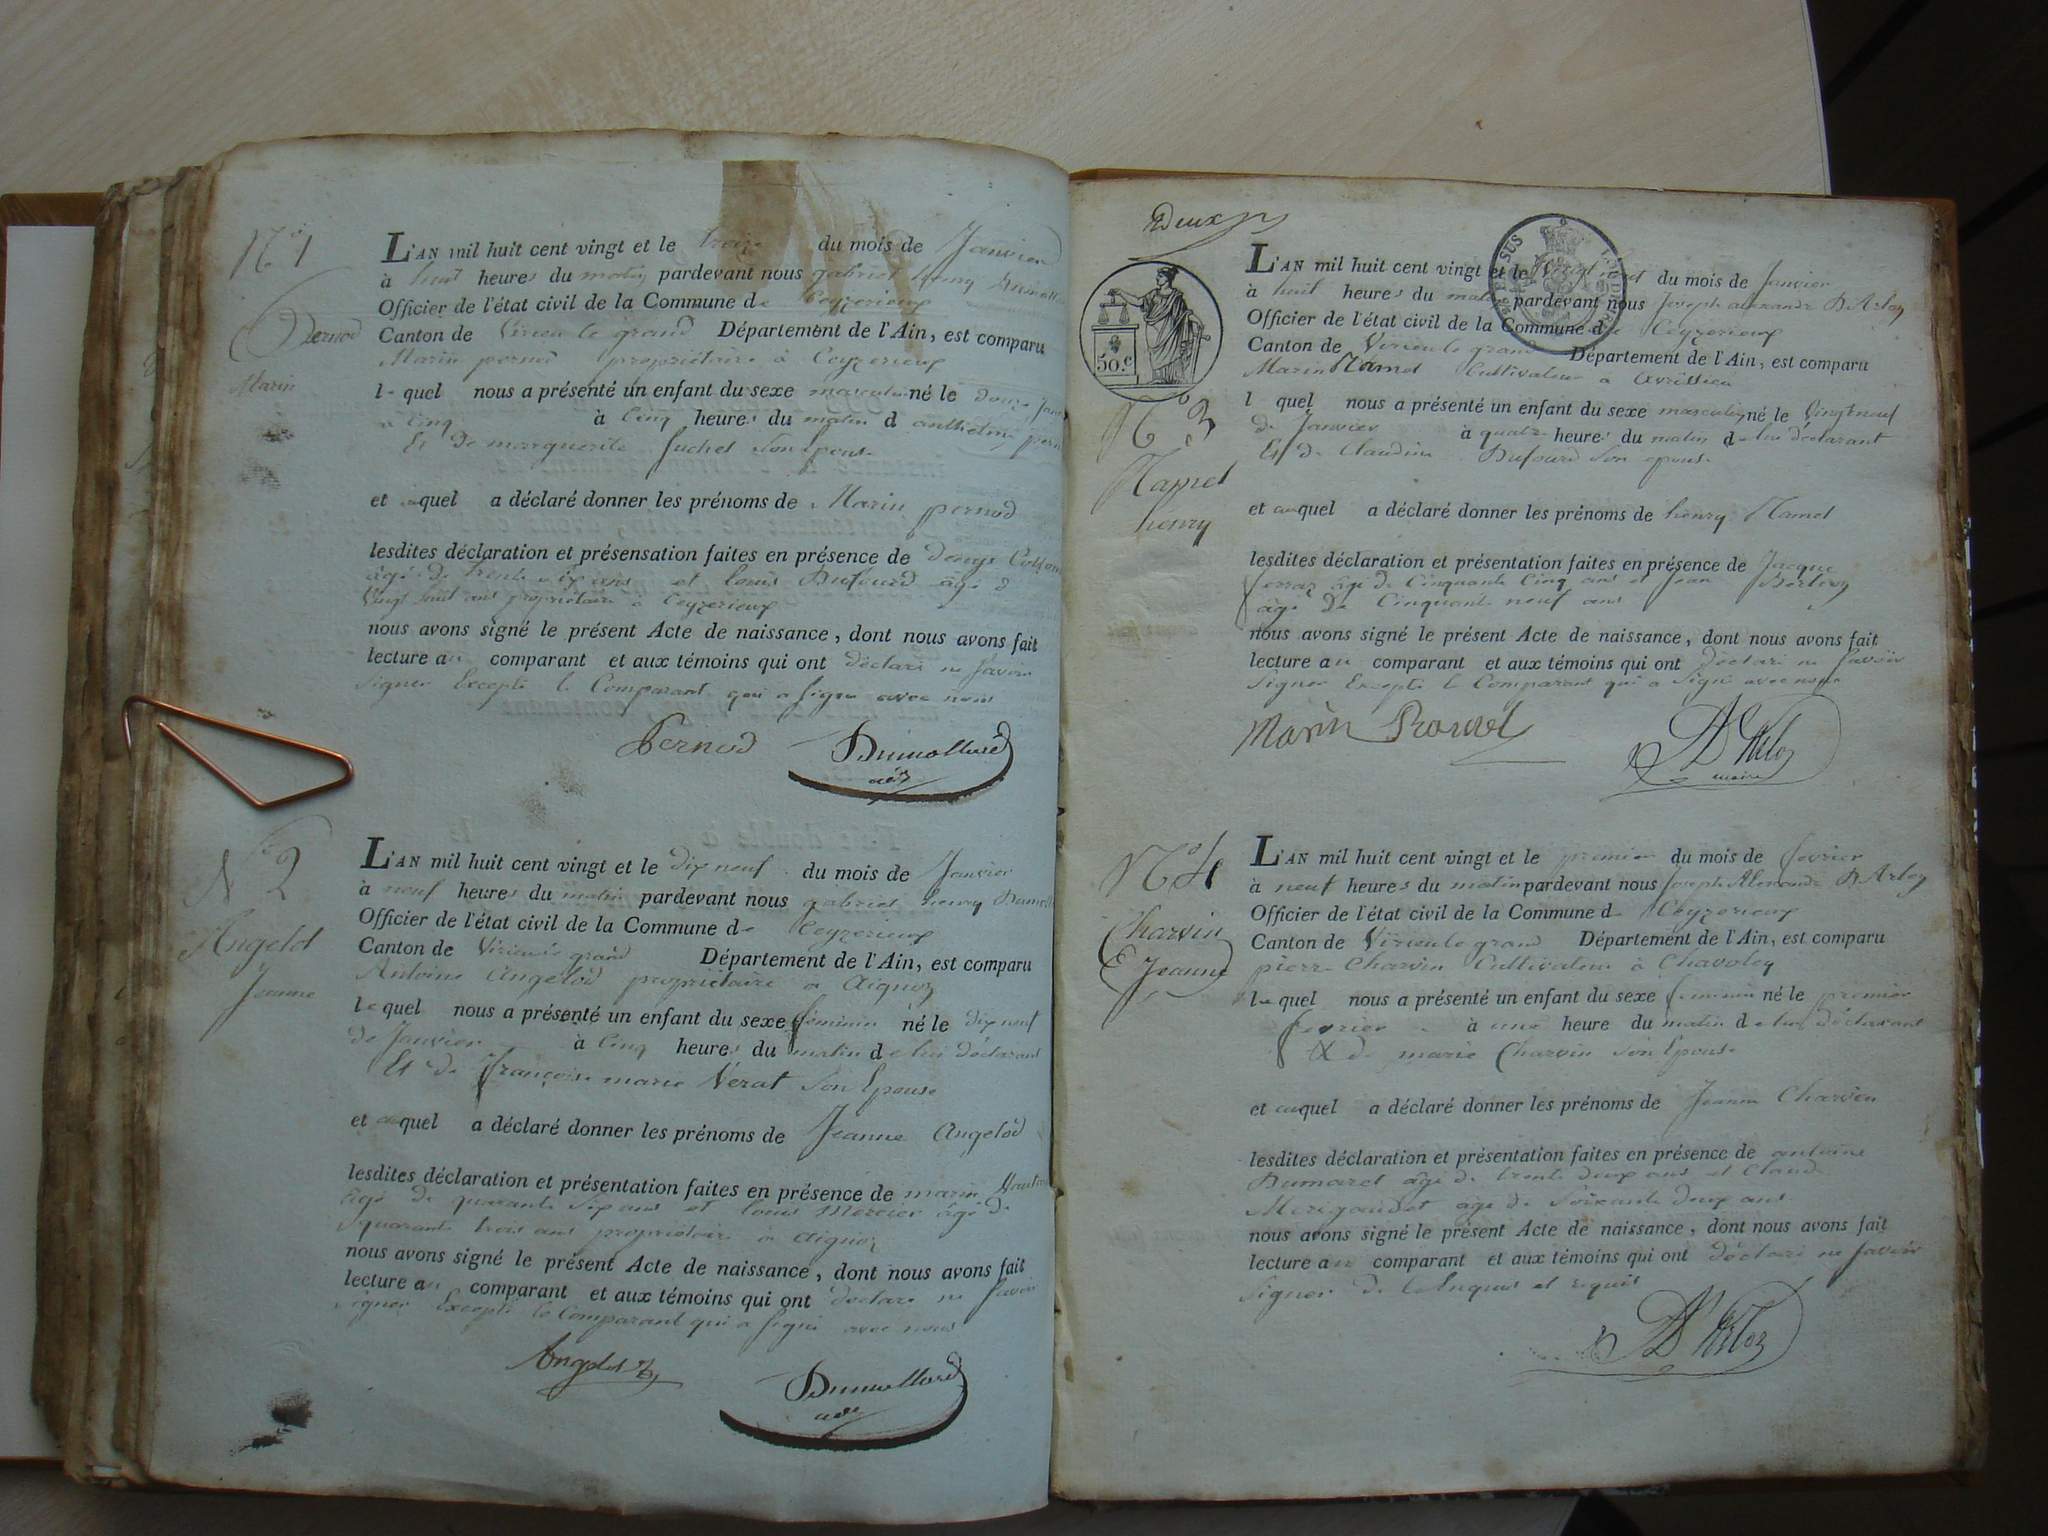 N° 1
Pernod
Marin
L'AN mil huit cent vingt et le treize du mois de Janvier
à huit heures du matin pardevant nous gabriel henry Dumollard
Officier de l'état civil de la Commune de Ceyzerieux
Canton de Virieu le grand Département de l'Ain, est comparu
Marin pernod propriétaire à Ceyzerieux
le quel nous a présenté un enfant du sexe masculin né le douze
à cinq heures du matin d
Et de marguerite Juchet son Epouse
et auquel a déclaré donner les prénoms de Marin pernod
lesdites déclaration et présensation faites en présence de denys
âgé de trente six ans et louis Dufourd âgé d
Vingt huit ans propriétaire à Ceyzerieux
nous avons signé le présent Acte de naissance, dont nous avons fait
lecture au comparant et aux témoins qui ont déclaré ne savoir
signer Excepté le Comparant qui a signé avec nous
Pernod Dumollard
N° 2
Angelot
Jeanne
L'AN mil huit cent vingt et le dix neuf du mois de Janvier
à neuf heures du matin pardevant nous gabriel henry
Officier de l'état civil de la Commune de Ceyzerieux
Canton de Virieu le grand Département de l'Ain, est comparu
Antoine Angelod propriétaire à Aignoz
le quel nous a présenté un enfant du sexe féminin né le dix neuf
de Janvier à cinq heures du matin de lui déclarant
Et de françoise marie Verat son Epouse
et auquel a déclaré donner les prénoms de Jeanne Angelod
lesdites déclaration et présentation faites en présence de marin
âgé de quarante six ans et louis Mercier âgé de
quarante trois ans propriétaire à Aignoz
nous avons signé le présent Acte de naissance, dont nous avons fait
lecture au comparant et aux témoins qui ont déclaré ne savoir
signer Excepté le Comparant qui a signé avec nous
Angelot Dumollard
Deux
50 c
N° 3
Ramel
henry
L'AN mil huit cent vingt et le Vingt neuf du mois de Janvier
à huit heures du matin pardevant nous Joseph alexandre D'Arloz
Officier de l'état civil de la Commune de Ceyzerieux
Canton de Virieu le grand Département de l'Ain, est comparu
Marin Ramel Cultivateur à Avrissieu
l quel nous a présenté un enfant du sexe masculin né le Vingt neuf
de Janvier à quatre heures du matin de lui déclarant
Et de Claudine Dufourd son epouse
et auquel a déclaré donner les prénoms de henry Ramel
lesdites déclaration et présentation faites en présence de Jacque
ferraz âgé de Cinquante Cinq ans et Jean
âgé De Cinquante neuf ans
nous avons signé le présent Acte de naissance, dont nous avons fait
lecture au comparant et aux témoins qui ont déclaré ne savoir
signer Excepté le Comparant qui a signé avec nous
Marin D'Arloz
maire
N° 4
Charvin
Jeanne
L'AN mil huit cent vingt et le premier du mois de fevrier
à neuf heures du matin pardevant nous Joseph Alexandre D'Arloz
Officier de l'état civil de la Commune de Ceyzerieux
Canton de Virieu le grand Département de l'Ain, est comparu
pierre Charvin Cultivateur à Chavoley
le quel nous a présenté un enfant du sexe feminin né le premier
fevrier à une heure du matin de lui déclarant
Et de marie Charvin son Epouse
et auquel a déclaré donner les prénoms de Jeanne Charvin
lesdites déclaration et présentation faites en présence de antoine
Dumaret âgé de trente deux ans et Claude
Merigaudet âgé de soixante deux ans
nous avons signé le présent Acte de naissance, dont nous avons fait
lecture au comparant et aux témoins qui ont déclaré ne savoir
signer De enquis et requis
D'Arloz